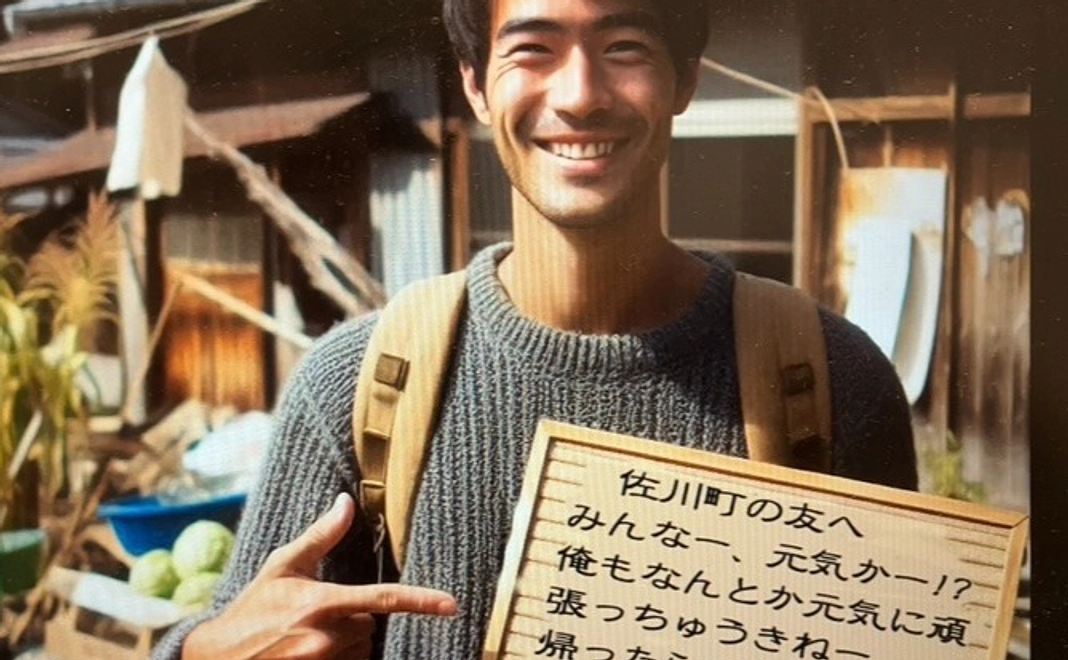 佐川町の友へ
みんなー、元気かー!?
俺もなんとか元気に頑
張っちゅうきねー
帰ったら